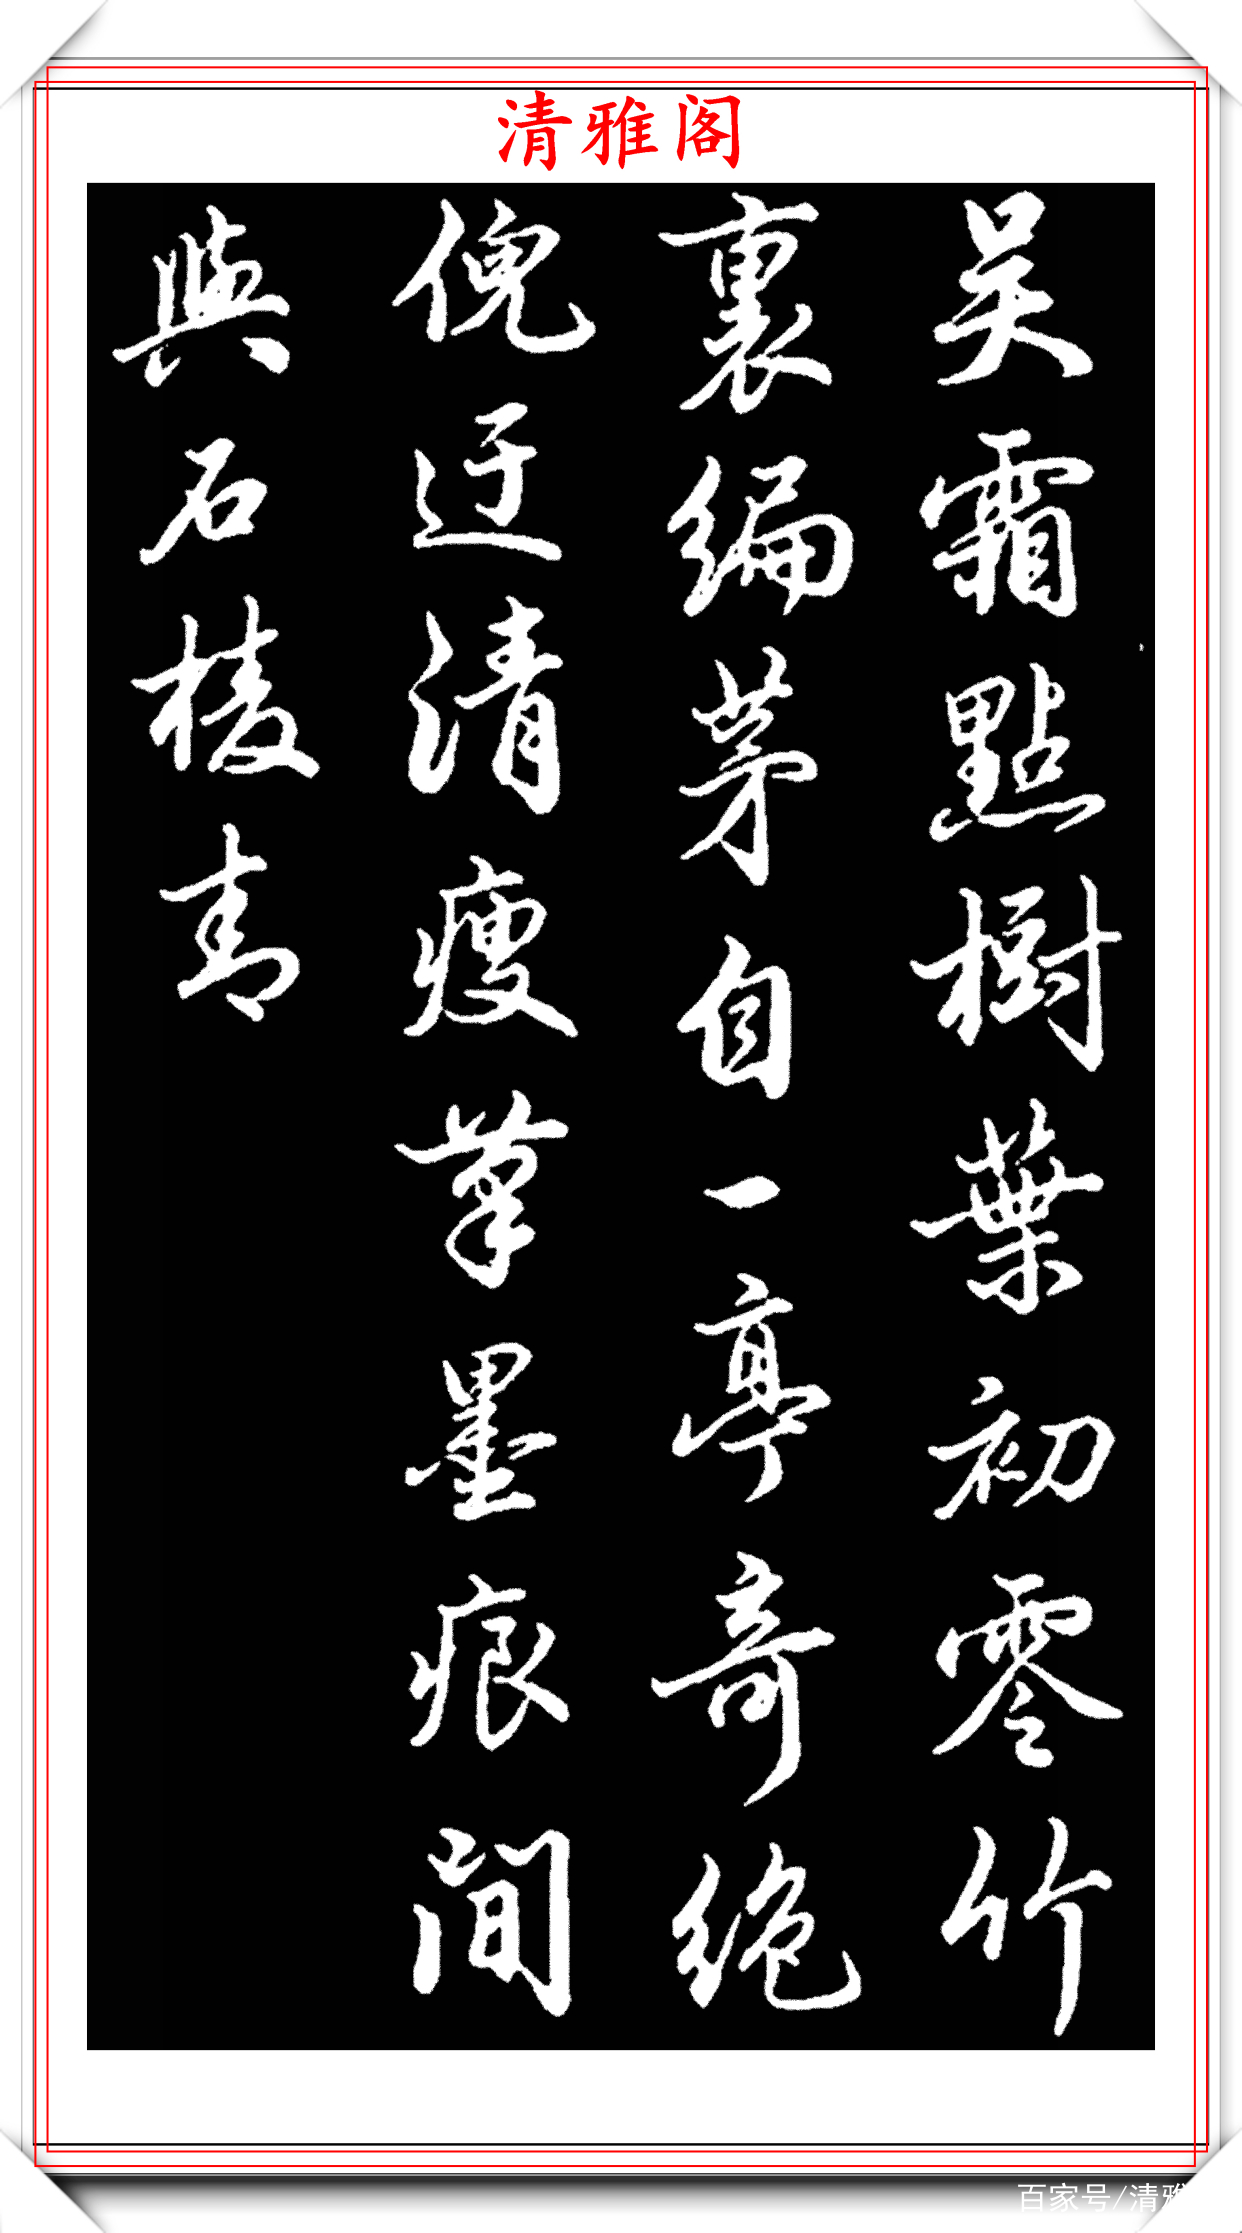 清雅阁
吴霜點樹葉初零竹
裏編茅自一亭奇絶
倪迂清瘦筆墨痕間
與石棱青
百家号/清雅